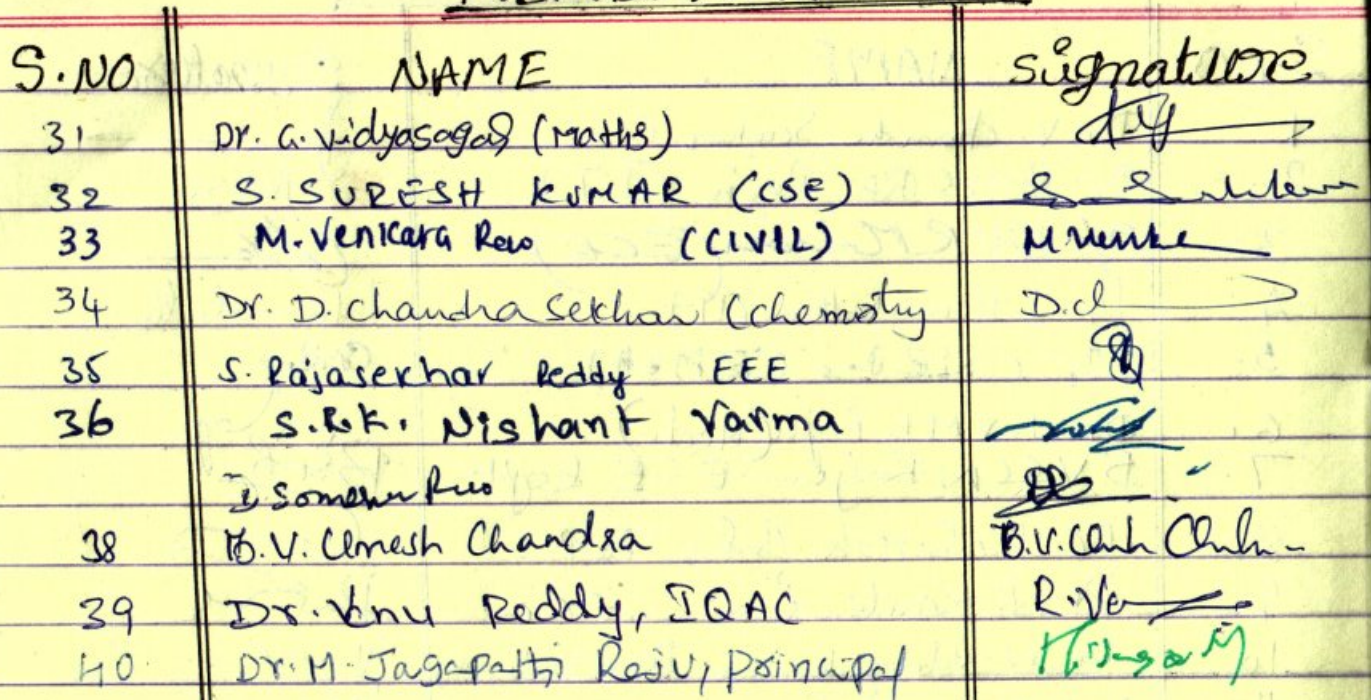 S.NO NAME Signature
31 Dr. G. Vidyasagar (Maths)
32 S. SURESH KUMAR (CSE)
33 M. Venkata Rao (CIVIL) M Venka
34 Dr. D. Chandra Sekhar (Chemistry D.Ch
35 S. Rajasekhar Reddy EEE
36 S.R.K. Nishant Varma
Someswara Rao
38 B.V. Umesh Chandra B.V.
39 Dr. Venu Reddy, IQAC R.Ve
40 Dr. M. Jagapathi Raju, Principal